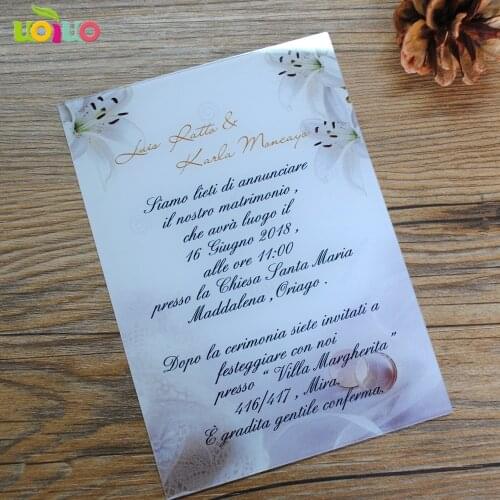 UOIUO
Luis Ratto &
Karla Moncayo
Siamo lieti di annunciare
il nostro matrimonio ,
che avrà luogo il
16 Giugno 2018 ,
alle ore 11:00
presso la Chiesa Santa Maria
Maddalena , Oriago .
Dopo la cerimonia siete invitati a
festeggiare con noi
presso " Villa Margherita "
416/417 , Mira.
È gradita gentile conferma.